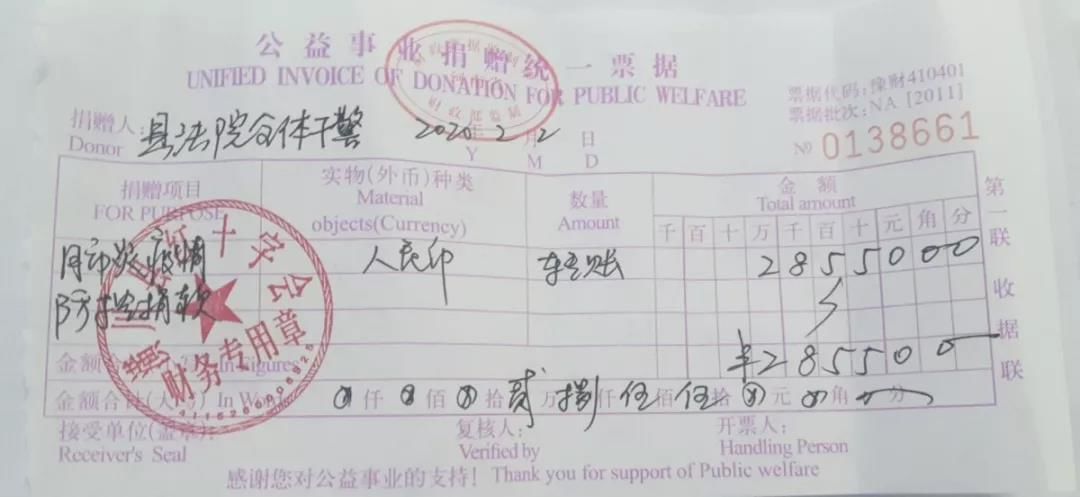 公益事业捐赠统一票据
UNIFIED INVOICE OF DONATION FOR PUBLIC WELFARE
票据代码:豫财410401
票据批次:NA [2011]
捐赠人: 县法院全体干警 2020 2 2 日
Donor Y M D
№ 0138661
捐赠项目 实物(外币)种类 数量 金额
FOR PURPOSE Material Amount Total amount
objects(Currency)
千 百 十 万 千 百 十 元 角 分
疫情 人民币 转账 2 8 5 5 0 0 0
防控捐款
金额合 In Figures ¥ 2 8 5 5 0 0
金额合计(大 In Wo ⊗ 仟 ⊗ 佰 ⊗ 拾 贰 万 捌 仟 伍 佰 伍 拾 ⊗ 元 ⊗ 角 分
接受单位(盖章): 复核人: 开票人:
Receiver's Seal Verified by Handling Person
感谢您对公益事业的支持! Thank you for support of Public welfare
第一联 收据联
红十字会
财务专用章